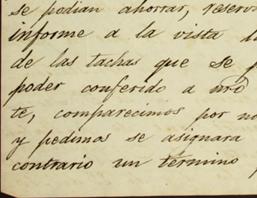 se podian ahorrar, reserv
informe a la vista d
de las tachas que se p
poder conferido a nro
te, comparecimos por n
y pedimos se asignara
contrario un termino